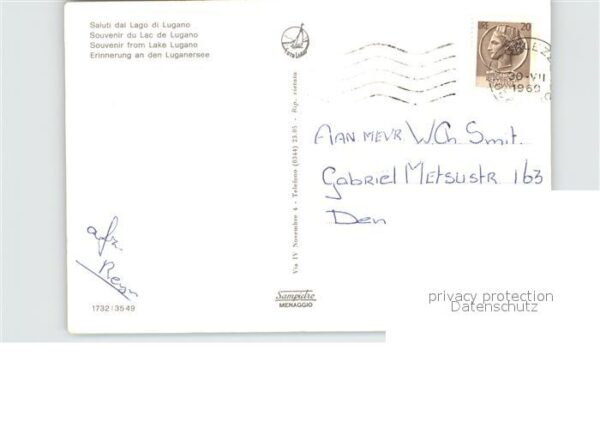 Saluti dal Lago di Lugano
Souvenir du Lac de Lugano
Souvenir from Lake Lugano
Erinnerung an den Luganersee
LIRE 20
30-VII
1969
AAN MEVR W.Ch. Smit.
Gabriel Metsustr 163
Den
afz.
Via IV Novembre 4 - Telefono (0344) 23.05 - Rip. vietata
Sampietro
MENAGGIO
1732 | 3549
privacy protection
Datenschutz